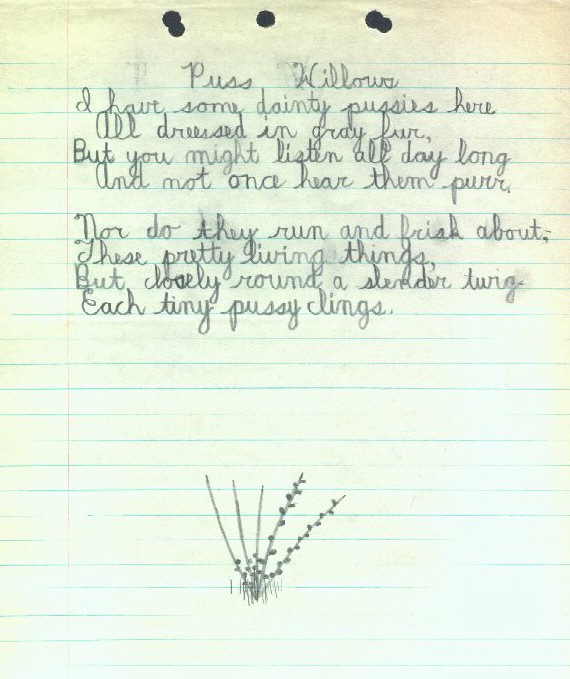 Puss Willows
I have some dainty pussies here
All dressed in gray fur,
But you might listen all day long
And not once hear them purr.
Nor do they run and frisk about,
These pretty living things,
But closely round a slender twig
Each tiny pussy clings.